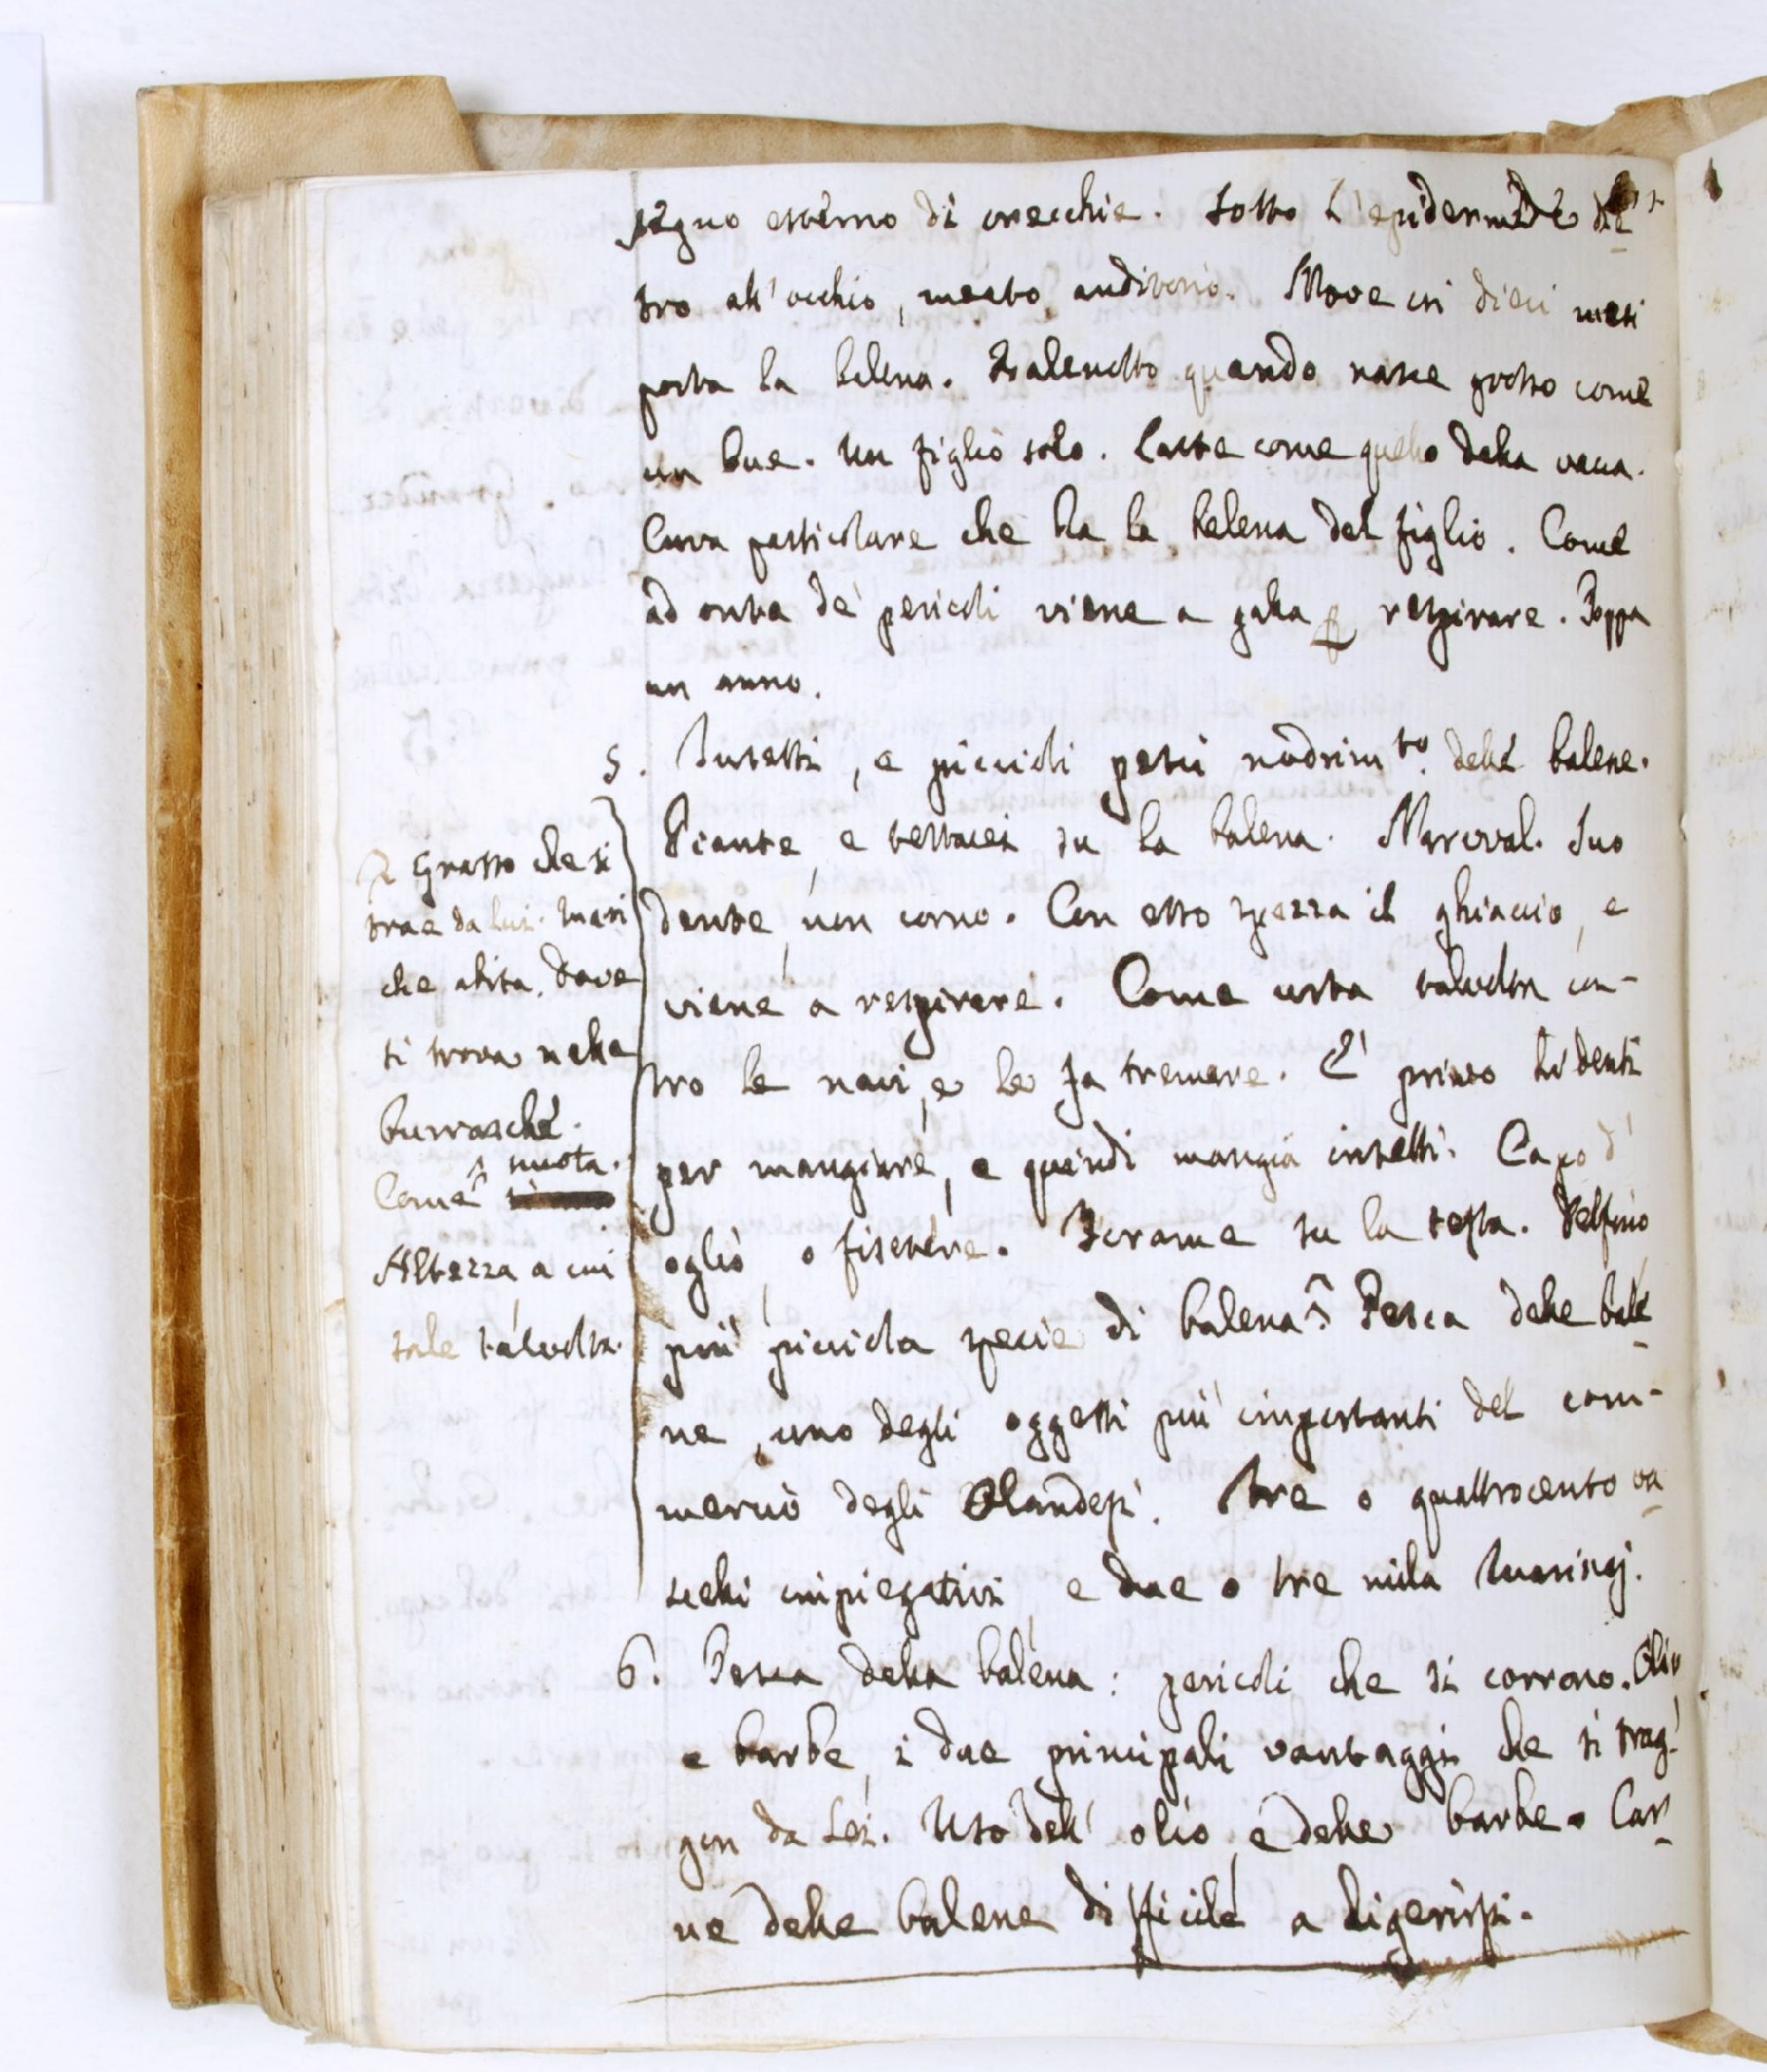 segno esterno di orecchie. Sotto l'epidermide die
tro all'occhio, meato auditorio. Nove in dieci mesi
porta la balena. Balenotto quando nasce grosso come
un bue. Un figlio solo. Latte come quello della vacca.
Cura particolare che ha la balena del figlio. Come
ad onta de' pericoli viene a galla p respirare. Poppa
un anno.
5. Insetti, e piccioli pesci nodrimto. delle balene.
Piante, e testacei su la balena. Narwal. Suo
dente, non corno. Con esso spezza il ghiaccio, e
viene a respirare. Come urta talvolta con-
tro le navi, e le fa tremare. E' privo di denti
per mangiare, e quindi mangia insetti. Capo d'
oglio, o fisetere. Forame su la testa. Delfino
più picciola specie di balena ^. Pesca delle bale
ne, uno degli oggetti più importanti del com-
mercio degli Olandesi. Tre o quattrocento va
scelli impiegativi e due o tre mila marinaj.
6. Pesca della balena: pericoli che si corrono. Olio
e barbe, i due principali vantaggi che si trag-
gon da lei. Uso dell' olio, e delle barbe. Car
ne delle balene difficile a digerirsi.
^ Grasso che si
trae da lui. Mari
che abita. Dove
si trova nelle
burrasche.
Come ^ nuota.
Altezza a cui
sale talvolta.